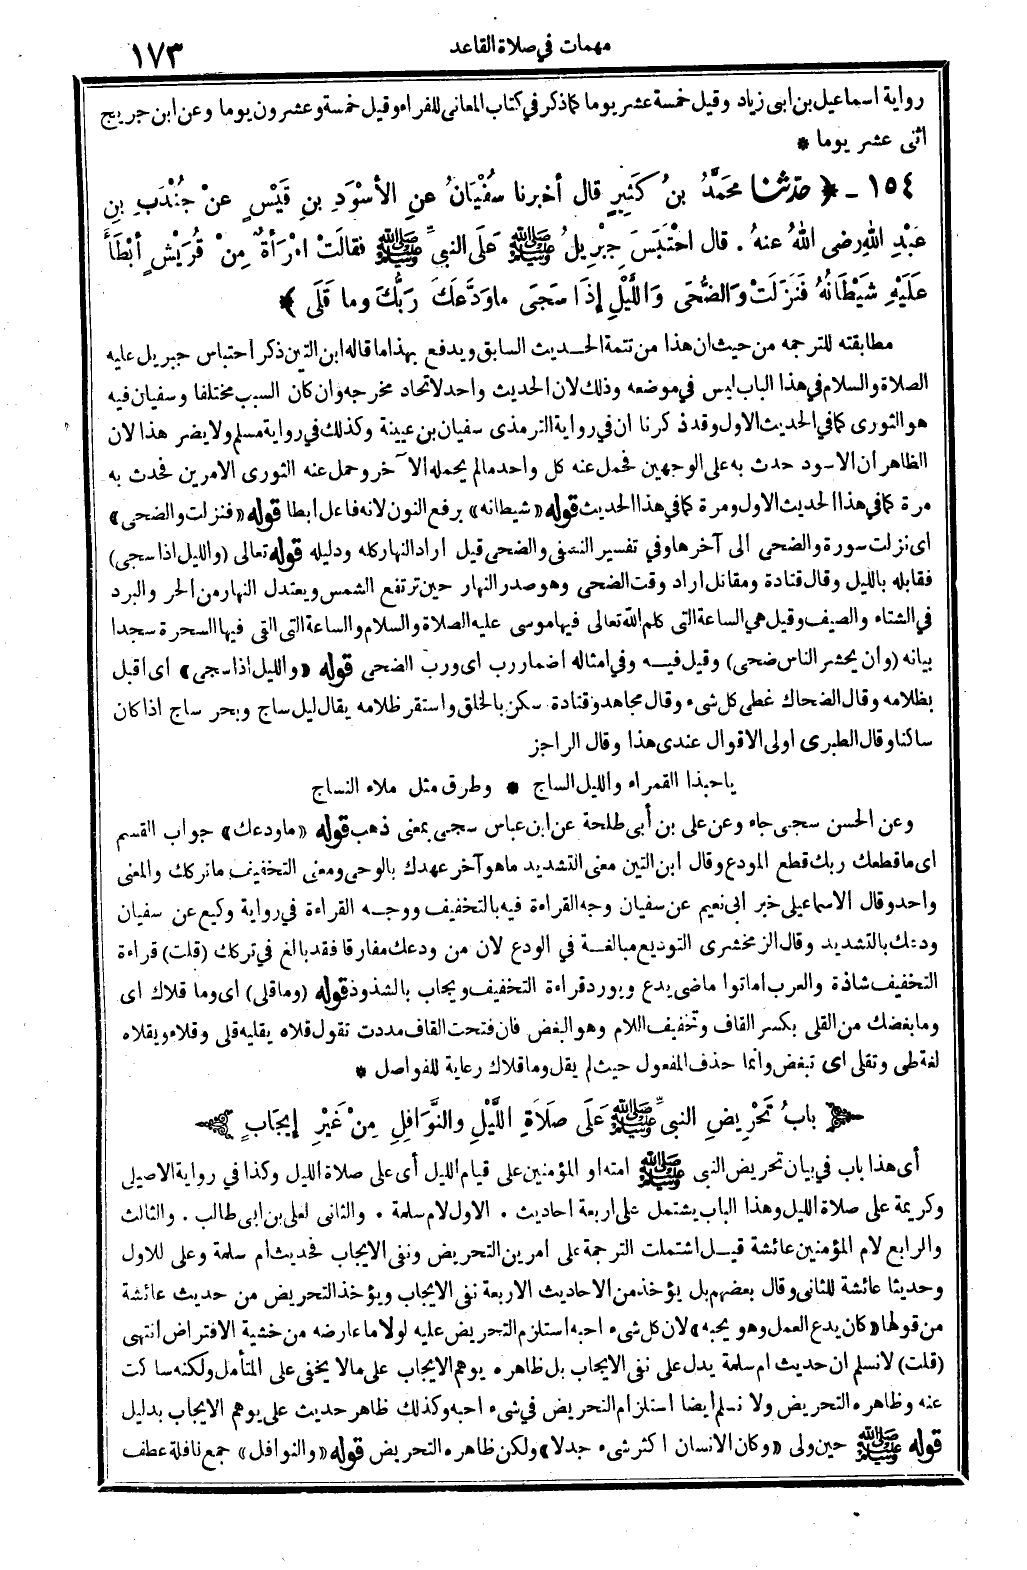 مهمات في صلاة القاعد
١٧٣
رواية اسماعيل بن ابى زياد وقيل خمسة عشر يوما كما ذكر في كتاب المعانى للفراء وقيل خمسة وعشرون يوما وعن ابن جريج
اثنى عشر يوما *
١٥٤ - ﴿ حدثنا محَمَّدُ بنُ كَثِيرٍ قال أخبرنا سُفْيَانُ عنِ الأسْوَدِ بنِ قَيْسٍ عنْ جُنْدَبِ بنِ
عَبْدِ اللهِ رضى اللهُ عنهُ . قال احْتَبَسَ جِبْرِيلُ ﷺ عَلَى النبيِّ ﷺ فقالَتْ امْرَأةٌ مِنْ قُرَيْشٍ أبْطَأَ
عَلَيْهِ شَيْطَانُهُ فَنَزَلَتْ وَالضُّحَى وَاللَّيْلِ إذَا سَجَى ماوَدَّعَكَ رَبُّكَ وما قَلَى ﴾
مطابقته للترجمه من حيث ان هذا من تتمة الحديث السابق ويدفع بهذا ما قاله ابن التين ذكر احتباس جبريل عليه
الصلاة والسلام في هذا الباب ليس في موضعه وذلك لان الحديث واحد لاتحاد مخرجه وان كان السبب مختلفا وسفيان فيه
هو الثورى كما في الحديث الاول وقد ذكرنا ان في رواية الترمذى سفيان بن عيينة وكذلك في رواية مسلم ولا يضر هذا لان
الظاهر ان الاسود حدث به على الوجهين فحمل عنه كل واحد مالم يحمله الآخر وحمل عنه الثورى الامرين فحدث به
مرة كما في هذا الحديث الاول ومرة كما في هذا الحديث قوله «شيطانه» برفع النون لانه فاعل ابطا قوله «فنزلت والضحى»
اى نزلت سورة والضحى الى آخرها وفي تفسير النسفى والضحى قيل اراد النهار كله ودليله قوله تعالى (والليل اذا سجى)
فقابله بالليل وقال قتادة ومقاتل اراد وقت الضحى وهو صدر النهار حين ترتفع الشمس ويعتدل النهار من الحر والبرد
في الشتاء والصيف وقيل هي الساعة التى كلم الله تعالى فيها موسى عليه الصلاة والسلام والساعة التى القى فيها السحرة سجدا
بيانه (وأن يحشر الناس ضحى) وقيل فيه وفي امثاله اضمار رب اى ورب الضحى قوله «والليل اذا سجى» اى اقبل
بظلامه وقال الضحاك غطى كل شىء وقال مجاهد وقتادة سكن بالخلق واستقر ظلامه يقال ليل ساج وبحر ساج اذا كان
ساكنا وقال الطبرى اولى الاقوال عندى هذا وقال الراجز
ياحبذا القمراء والليل الساج * وطرق مثل ملاء النساج
وعن الحسن سجى جاء وعن على بن أبى طلحة عن ابن عباس سجى بمعنى ذهب قوله «ماودعك» جواب القسم
اى ماقطعك ربك قطع المودع وقال ابن التين معنى التشديد ماهو آخر عهدك بالوحى ومعنى التخفيف ماتركك والمعنى
واحد وقال الاسماعيلى خبر ابى نعيم عن سفيان وجه القراءة فيه بالتخفيف ووجه القراءة في رواية وكيع عن سفيان
ودعك بالتشديد وقال الزمخشرى التوديع مبالغة في الودع لان من ودعك مفارقا فقد بالغ في تركك (قلت) قراءة
التخفيف شاذة والعرب اماتوا ماضى يدع ويورد قراءة التخفيف ويجاب بالشذوذ قوله (وماقلى) اى وما قلاك اى
وما بغضك من القلى بكسر القاف وتخفيف اللام وهو البغض فان فتحت القاف مددت تقول قلاه يقليه قلى وقلاء ويقلاه
لغة طى وتقلى اى تبغض وانما حذف المفعول حيث لم يقل وما قلاك رعاية للفواصل *
بابُ تَحْرِيضِ النبيِّ ﷺ عَلَى صَلاَةِ اللَّيْلِ والنَّوَافِلِ مِنْ غَيْرِ إيجَابٍ
أى هذا باب في بيان تحريض النبى ﷺ امته او المؤمنين على قيام الليل أى على صلاة الليل وكذا في رواية الاصيلى
وكريمة على صلاة الليل وهذا الباب يشتمل على اربعة احاديث . الاول لام سلمة . والثانى لعلى بن ابى طالب . والثالث
والرابع لام المؤمنين عائشة قيل اشتملت الترجمة على امرين التحريض ونفى الايجاب فحديث ام سلمة وعلى للاول
وحديثا عائشة للثانى وقال بعضهم بل يؤخذ من الاحاديث الاربعة نفى الايجاب ويؤخذ التحريض من حديث عائشة
من قولها «كان يدع العمل وهو يحبه» لان كل شىء احبه استلزم التحريض عليه لولا ما عارضه من خشية الافتراض انتهى
(قلت) لانسلم ان حديث ام سلمة يدل على نفى الايجاب بل ظاهره يوهم الايجاب على مالا يخفى على المتأمل ولكنه ساكت
عنه وظاهره التحريض ولا نسلم ايضا استلزام التحريض في شىء احبه وكذلك ظاهر حديث على يوهم الايجاب بدليل
قوله ﷺ حين ولى «وكان الانسان اكثر شىء جدلا» ولكن ظاهره التحريض قوله «والنوافل» جمع نافلة عطف